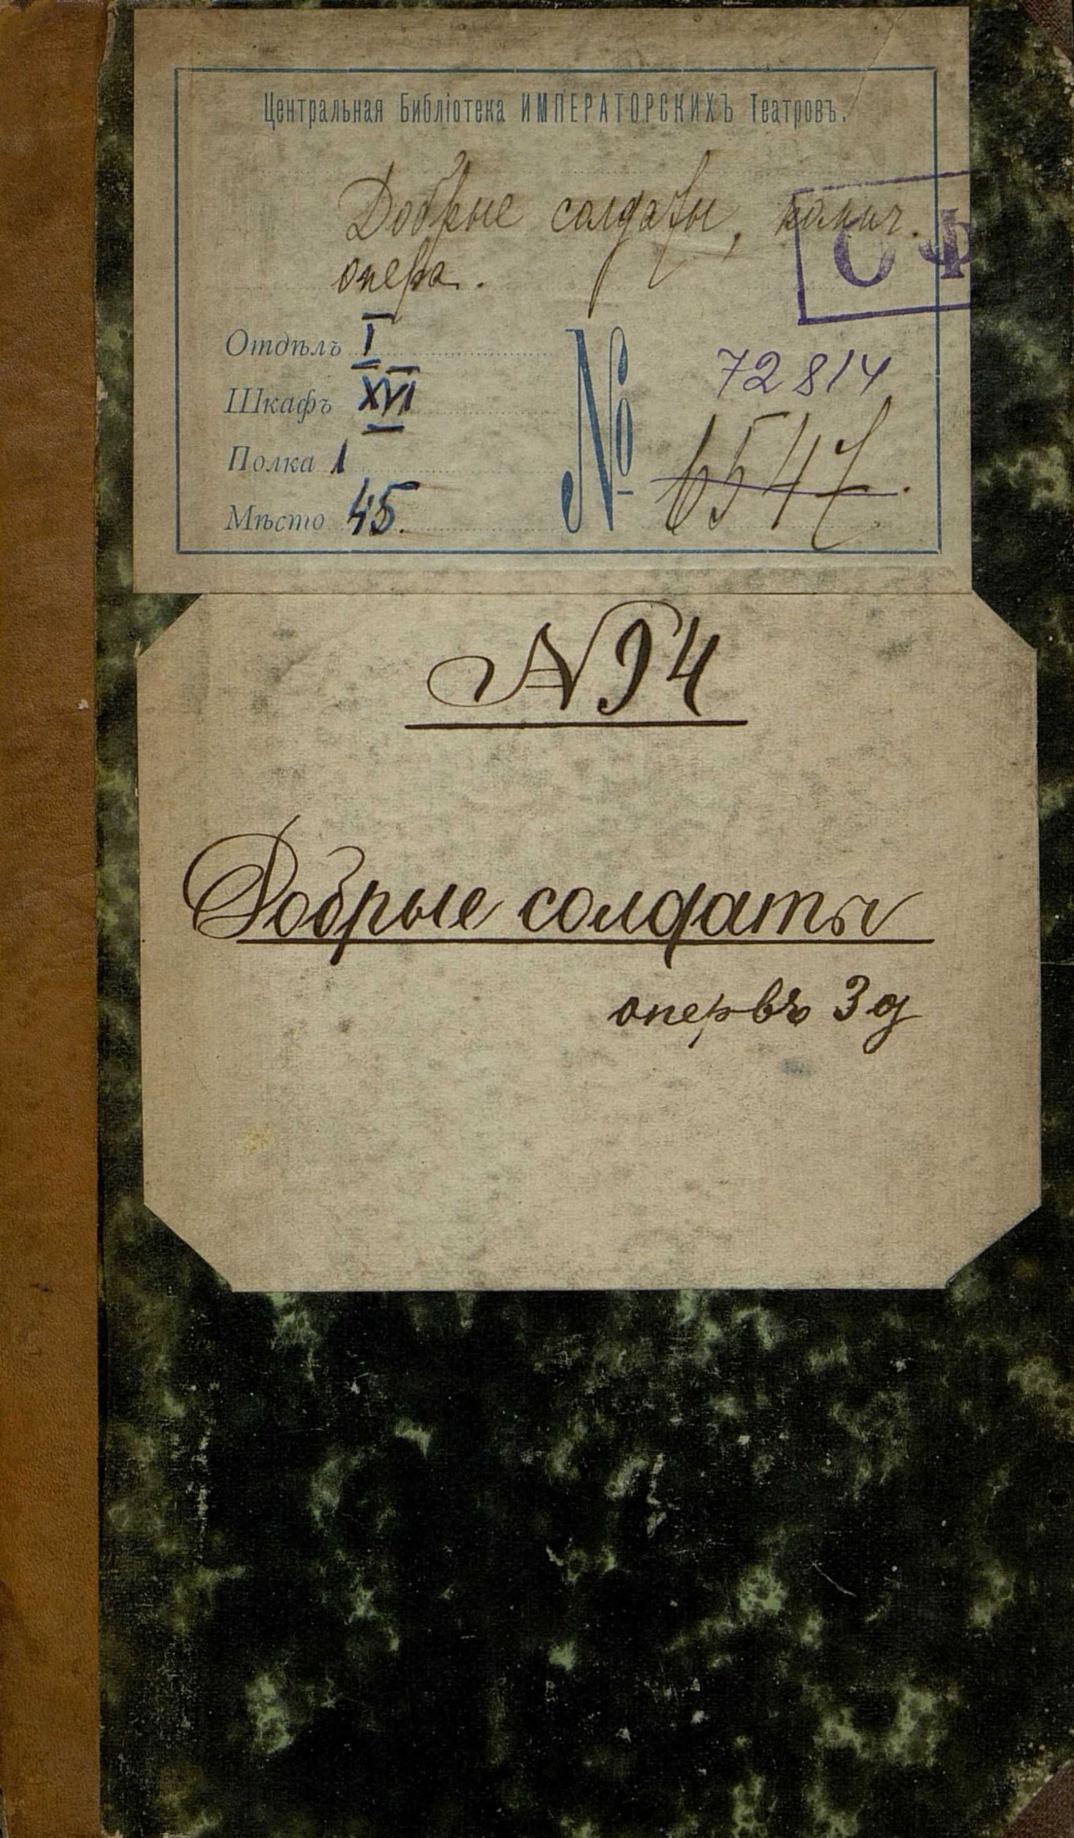 Центральная Библіотека ИМПЕРАТОРСКИХЪ Театровъ.
Добрые солдаты, комич.
опера.
ОФ
Отдѣлъ I
Шкафъ XVI
Полка 1
Мѣсто 45.
№ 72814
6547.
№ 94
Добрые солдаты
опера въ 3 д